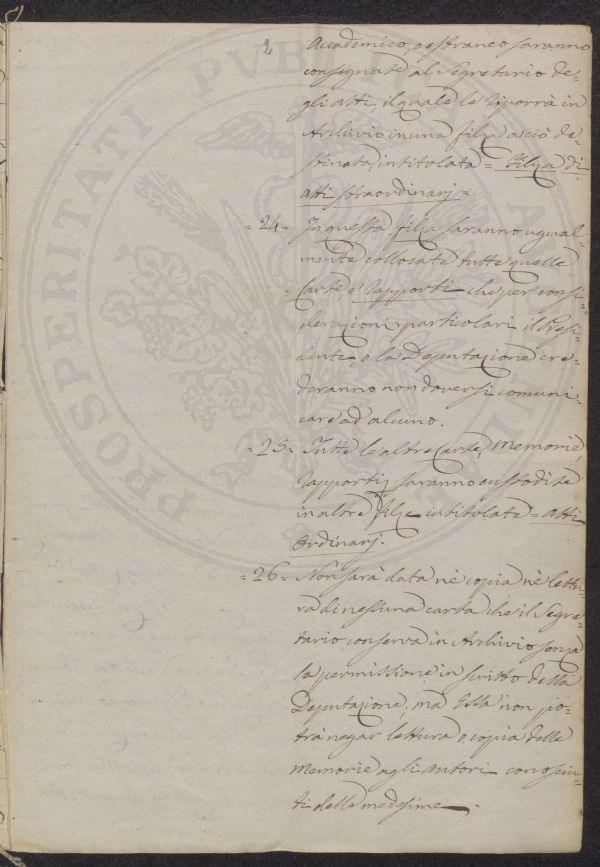 Accademico, o estraneo saranno
consegnate al Segretario de=
gli atti, il quale le riporrà in
Archivio in una filza a ciò de=
stinata, intitolata = Filza di
atti straordinarj =
= 24 = In questa filza saranno ugual=
mente collocate tutte quelle
Carte e rapporti che per consi=
derazioni particolari il Presi=
dente, o la Deputazione cre=
deranno non doversi comuni=
care ad alcuno.
= 25 = Tutte le altre Carte, Memorie,
rapporti saranno custodite
in altre filze intitolate = Atti
Ordinarj.
= 26 = Non sarà data nè copia nè lettu=
ra di nessuna carta che il Segre=
tario conserva in Archivio senza
la permissione in scritto della
Deputazione, ma Essa non po=
trà negar lettura o copia delle
Memorie agli Autori conosciu=
ti delle medesime.
PROSPERITATI PUBLICAE